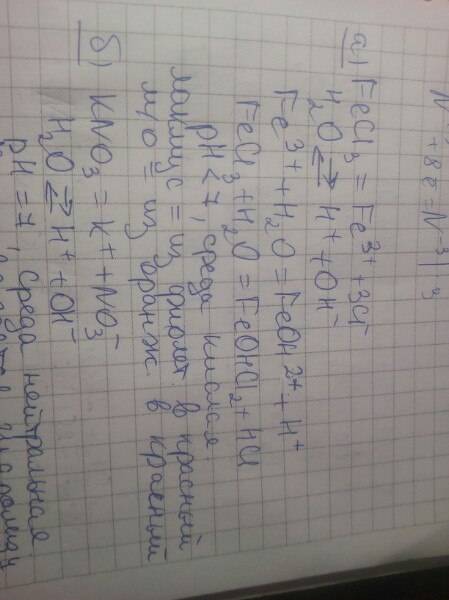 N⁻³
+8e = N⁻³ | 3
а) FeCl₃ = Fe³⁺ + 3Cl⁻
H₂O ⇄ H⁺ + OH⁻
Fe³⁺ + H₂O = FeOH²⁺ + H⁺
FeCl₃ + H₂O = FeOHCl₂ + HCl
pH < 7, среда кислая
лакмус = из фиолет. в красный
м/о = из оранж в красный
б) KNO₃ = K⁺ + NO₃⁻
H₂O ⇄ H⁺ + OH⁻
pH = 7, среда нейтральная